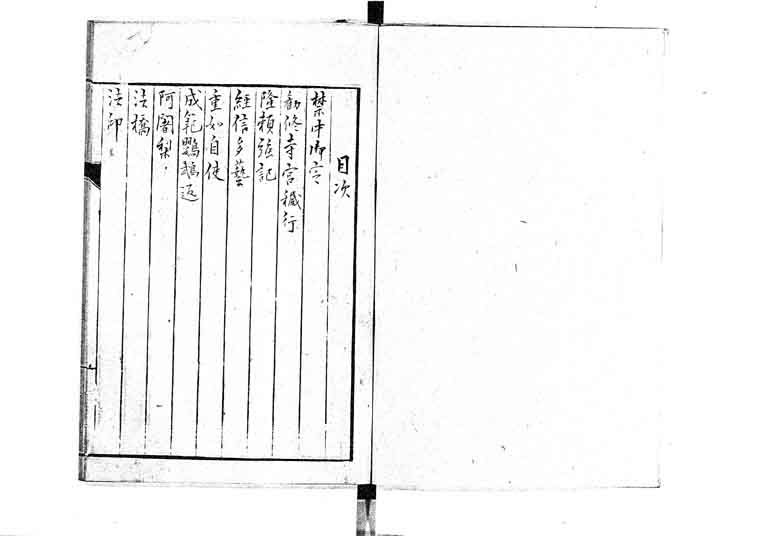 目次
禁中御会
勧修寺宮穢行
隆頼強記
経信多藝
重如自使
成範鸚鵡返
阿闍梨
法橋
法印